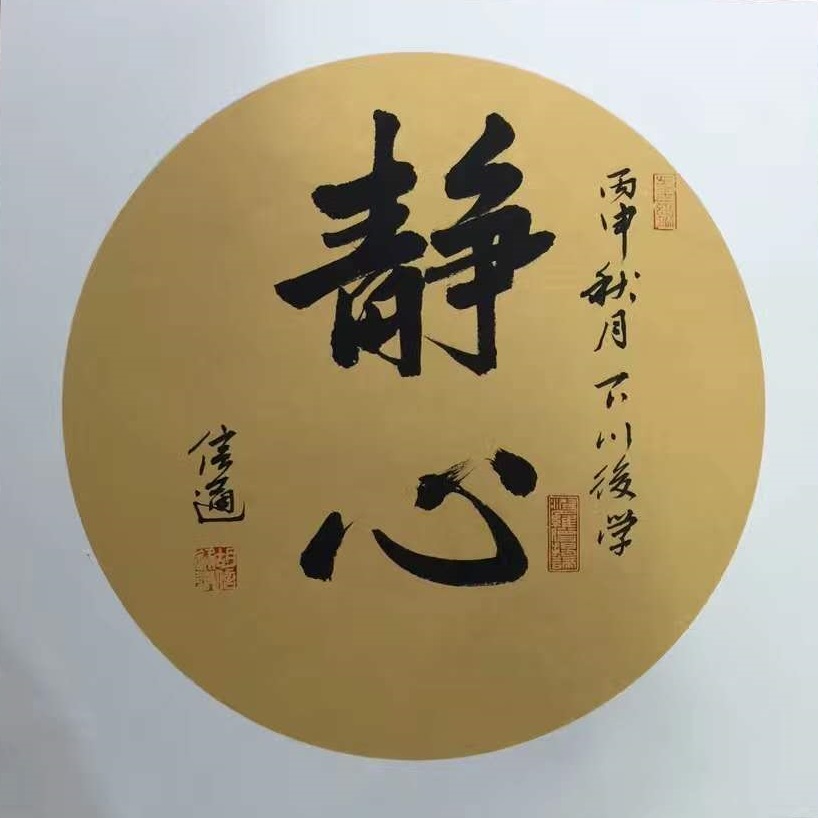 静心
丙申秋月下川後学
信通